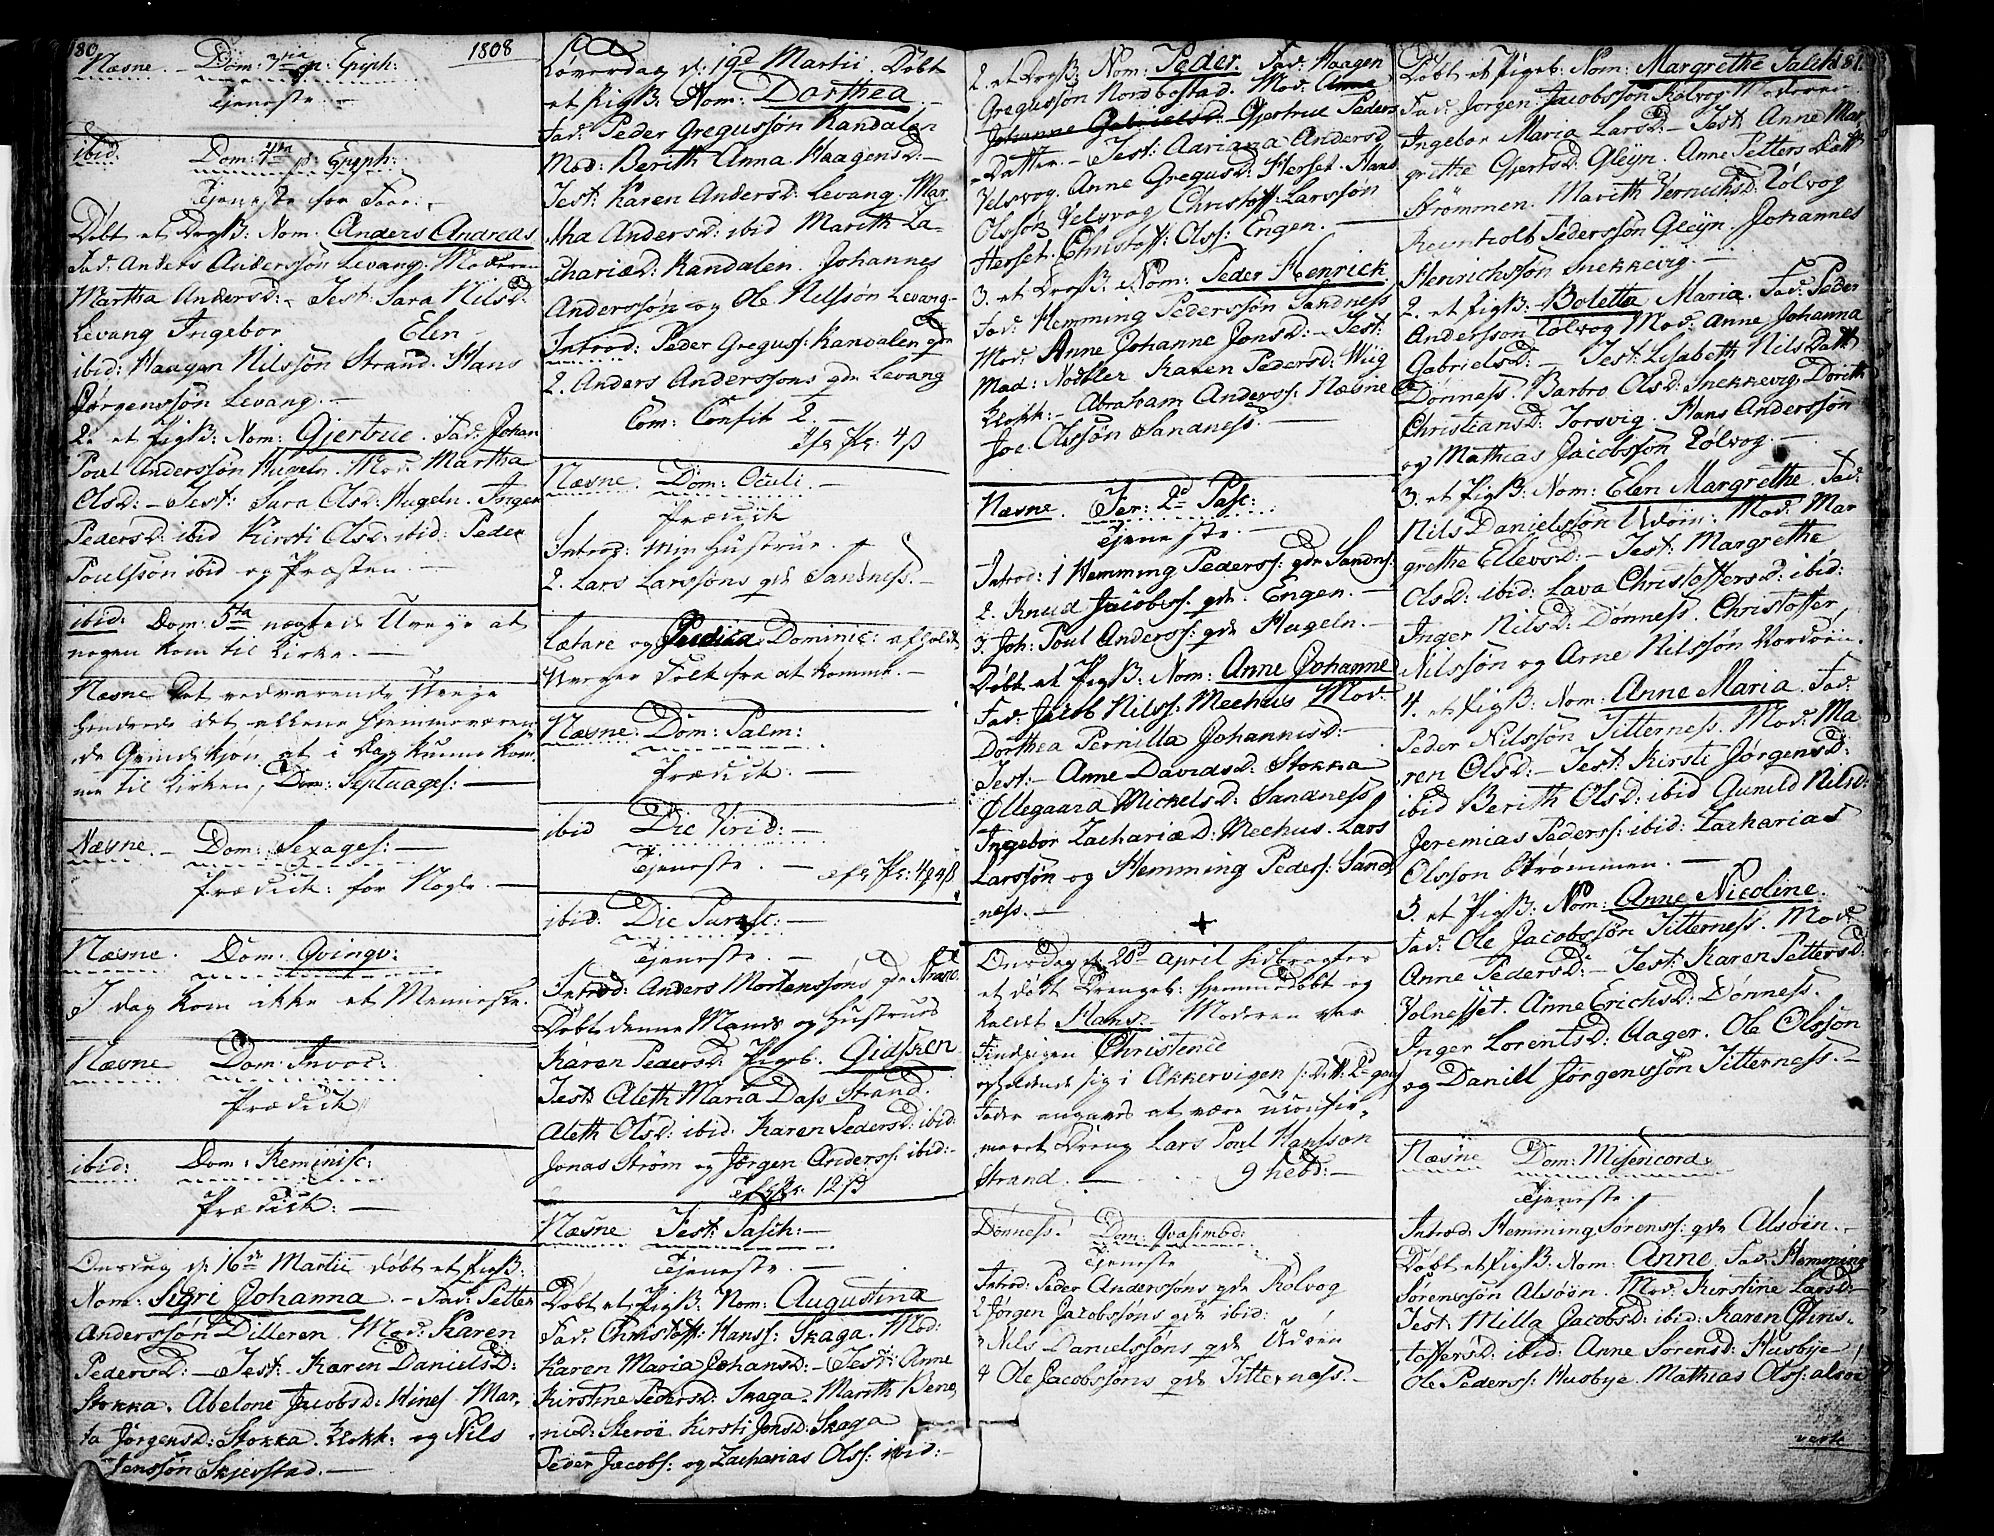 180
1808
Næsne. Dom: 3tia p: Epiph:
Tjeneste. —
ibid: Dom: 4ta p: Epiph:
Tjeneste for Faae. —
Døbt et DrgB: Nom: Anders Andreas
Fad: Anders Anderssøn Levang. Moderen
Martha Andersd: — Test: Sara Nilsd:
Levang Ingebor Elen
ibid: Haagen Nilssøn Strand. Hans
Jørgenssøn Levang. —
2. et PigB: Nom: Gjertrue. Fad: Johan
Poul Anderssøn Hugeln. Mod: Martha
Olsd: — Test: Sara Olsd: Hugeln. Inger
Pedersd: ibid Kirsti Olsd: ibid: Peder
Poulssøn ibid og Præsten. —
ibid: Dom: 5ta nægtede Uveye at
nogen kom til Kirke. —
Næsne Det vedvarende Uveye
hindrede det allene hjemmeværen-
de Qvindekjøn at i Dag kunne kom-
me til Kirken, Dom: Septuages: —
Næsne. — Dom: Sexages: —
Prædick: for Nogle. —
Næsne. Dom: Qvinqv:
I dag kom ikke et Menneske.
Næsne Dom: Invoc:
Prædick
ibid: Dom: Reminisc:
Prædick: —
Onsdag d: 16de Martii døbt et PigB:
Nom: Sigri Johanna — Fad: Petter
Anderssøn Dilleren. Mod: Karen
Pedersd: — Test: Karen Danielsd:
Stokka. Abelone Jacobsd: Hines. Mar-
ta Jørgensd: Stokka. Klokk: og Nils
Jenssøn Skjerstad. —
Løverdag d: 19de Martii. Døbt
et PigB: Nom: Dorthea —
Fad: Peder Gregussøn Kandalen
Mod: Berith Anna Haagensd: —
Test: Karen Andersd: Levang. Mar-
tha Andersd: ibid Marith Za-
chariæd: Kandalen. Johannes
Anderssøn og Ole Nilssøn Levang
Introd: Peder Greguss: Kandalen qde
2. Anders Anderssøns qde Levang
Com: Confit 2. —
Næsne. Dom: Oculi. —
Prædick
Introd: Min Hustrue. —
2. Lars Larssøns qde Sandness. —
Lætare og Judica Dominic: afholdt
Uveyer Folk fra at komme. —
Næsne. Dom: Palm:
Prædick: —
ibid Die Virid: —
Tjeneste. —
ibid: Die Parasc: —
Tjeneste. —
Introd: Anders Mortenssøns qde Strand.
Døbt denne Mands og Hustrues
Karen Pedersd: Pigeb. Gidsken
Test: Aleth Maria Dass Strand.
Aleth Olsd: ibid: Karen Pedersd: ibid:
Jonas Strøm og Jørgen Anderss: ibid: —
Næsne Fest: Pasch: —
Tjeneste. —
Døbt et PigB: Nom: Augustina
Fad: Christoff: Hanss: Skaga. Mod:
Karen Maria Johansd: — Test: Anne
Kirstine Pedersd: Skaga. Marith Bene-
nicd: Skeroe. Kirsti Jonsd: Skaga
Peder Jacobs: og Zacharias Olss: ibid: —
2. et DrgB: Nom: Peder. Fad: Haagen
Gregussøn Nordbostad. Mod: Anne
Johanne Gabrielsd: Gjertrue Peders
Datter. — Test: Aariana Andersd:
Velsvog. Anne Gregusd: Herset. Hans
Olssøn Velsvog Christoff: Larssøn
Herset. Christoff: Olss: Engen. —
3. et DrgB: Nom: Peder Henrick
Fad: Hemming Pederssøn Sandness
Mod: Anne Johanne Jonsd: — Test:
Mad: Nodbler Karen Pedersd: Wiig
Klokk: — Abraham Anderss: Næsne
Joe. Olssøn Sandness. —
Næsne. Fer: 2d Pasc:
Tjeneste. —
Introd: 1 Hemming Pederss: qde Sandn:
2. Knud Jacobss: qde Engen. —
3. Joh: Poul Anderss: qde Hugeln. —
Døbt et PigB: Nom: Anne Johanne
Fad: Jacob Nilss: Meehus Mod:
Dorthea Pernilla Johannisd: —
Test: — Anne Davidsd: Stokka
Øllegaara Mickelsd: Sandness
Ingebor Zachariæd: Meehus. Lars
Larssøn og Hemming Pederss: Sand-
ness. —
Onsdag d: 20d April
et døbt Drengeb: hjemmedøbt og
kaldet Hans. Moderen var
Findpigen Christence
opholdende sig i Akkervigen
Fader angaves at være uconfir-
meret Dreng Lars Poul Hanssøn
Strand. — 9 hebd: —
Dønness. Dom: Qvasimod:
Tjeneste
Introd: Peder Anderssøns qde Rølvog
2 Jørgen Jacobssøns qde ibid:
3 Nils Danielssøns qde Udøen
4 Ole Jacobssøns qde Titterness. —
181
Døbt et Pigeb: Nom: Margrethe
Fad: Jørgen Jacobssøn Rølvog Moderen
Ingebor Maria Larsd: — Test: Anne Mar-
grethe Gjertsd: Gleyn. Anne Petters Datt
Strømmen. Marith Vernichsd: Rølvog
Reenholt Pederssøn Gleyn. Johannes
Henrichssøn Snekkevig. —
2. et PigB: Boletta Maria. Fad: Peder
Andersson Rølvog Mod: Anne Johanna
Gabrielsd: — Test: Lisabeth Nils Datt
Dønness. Barbro Olsd: Snekkevig, Dorith
Christiansd: Torsvig. Hans Anderssøn
og Mathias Jacobssøn Rølvog. —
3. et PigB: Nom: Elen Margrethe. Fad:
Nils Danielssøn Udøin. Mod: Mar-
grethe Ellevsd: — Test: Margrethe
Olsd: ibid: Lava Christoffersd: ibid:
Inger Nilsd: Dønness. Christoffer
Nilssøn og Arne Nilssøn Nordøen.
4. et PigB: Nom: Anne Maria. Fad:
Peder Nilssøn Titterness. Mod: Ma-
ren Olsd: — Test: Kirsti Jørgensd:
ibid Berith Olsd: ibid Gunild Nilsd:
Jeremias Pederss: ibid: Zacharias
Olsson Strømmen. —
5. et PigB: Nom: Anne Nicoline.
Fad: Ole Jacobssøn Titterness. Mod:
Anne Pedersd: — Test: Karen Pettersd:
Volnesset. Anne Erichsd: Dønness.
Inger Lorentsd: Aager. Ole Olsson
og Daniel Jørgenssøn Titterness. —
Næsne Dom: Misericord:
Tjeneste. —
Introd: Hemming Sørenss: qde Alsøen. —
Døbt et PigB: Nom: Anne. Fad: Hemming
Sørenssøn Alsøen. Mod: Kirstine Larsd:
Test: Milla Jacobsd: ibid: Karen Chris-
toffersd: ibid: Anne Sørensd: Husbye
Ole Pederss: Husbye Mathias Olss: Alsøe
verte